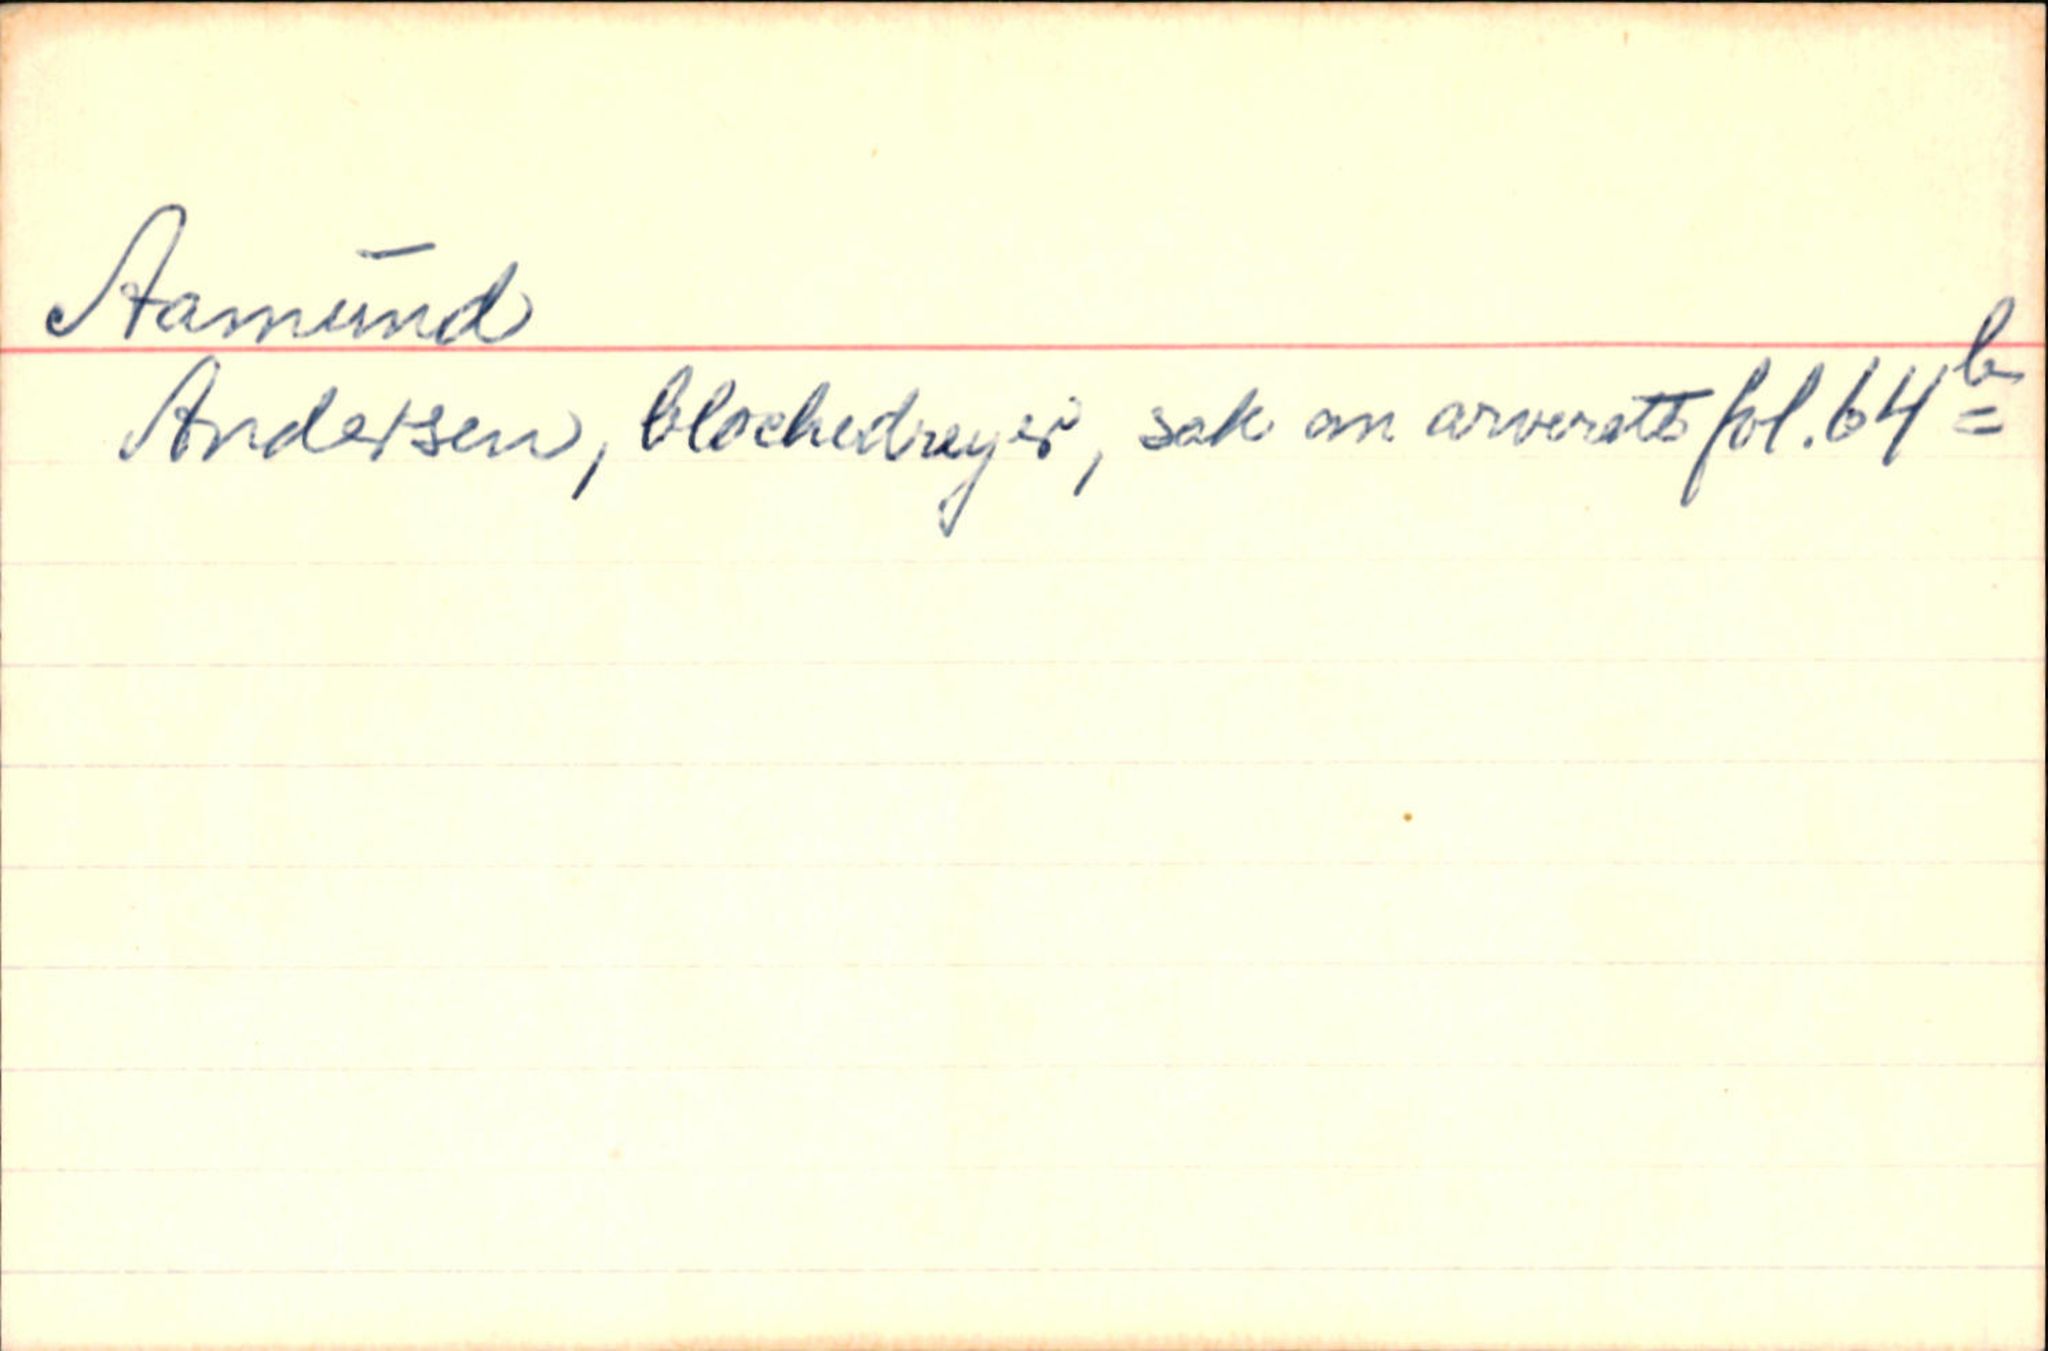 Aamund
Andersen, blochedreyer, sak om arverett fol. 64 b